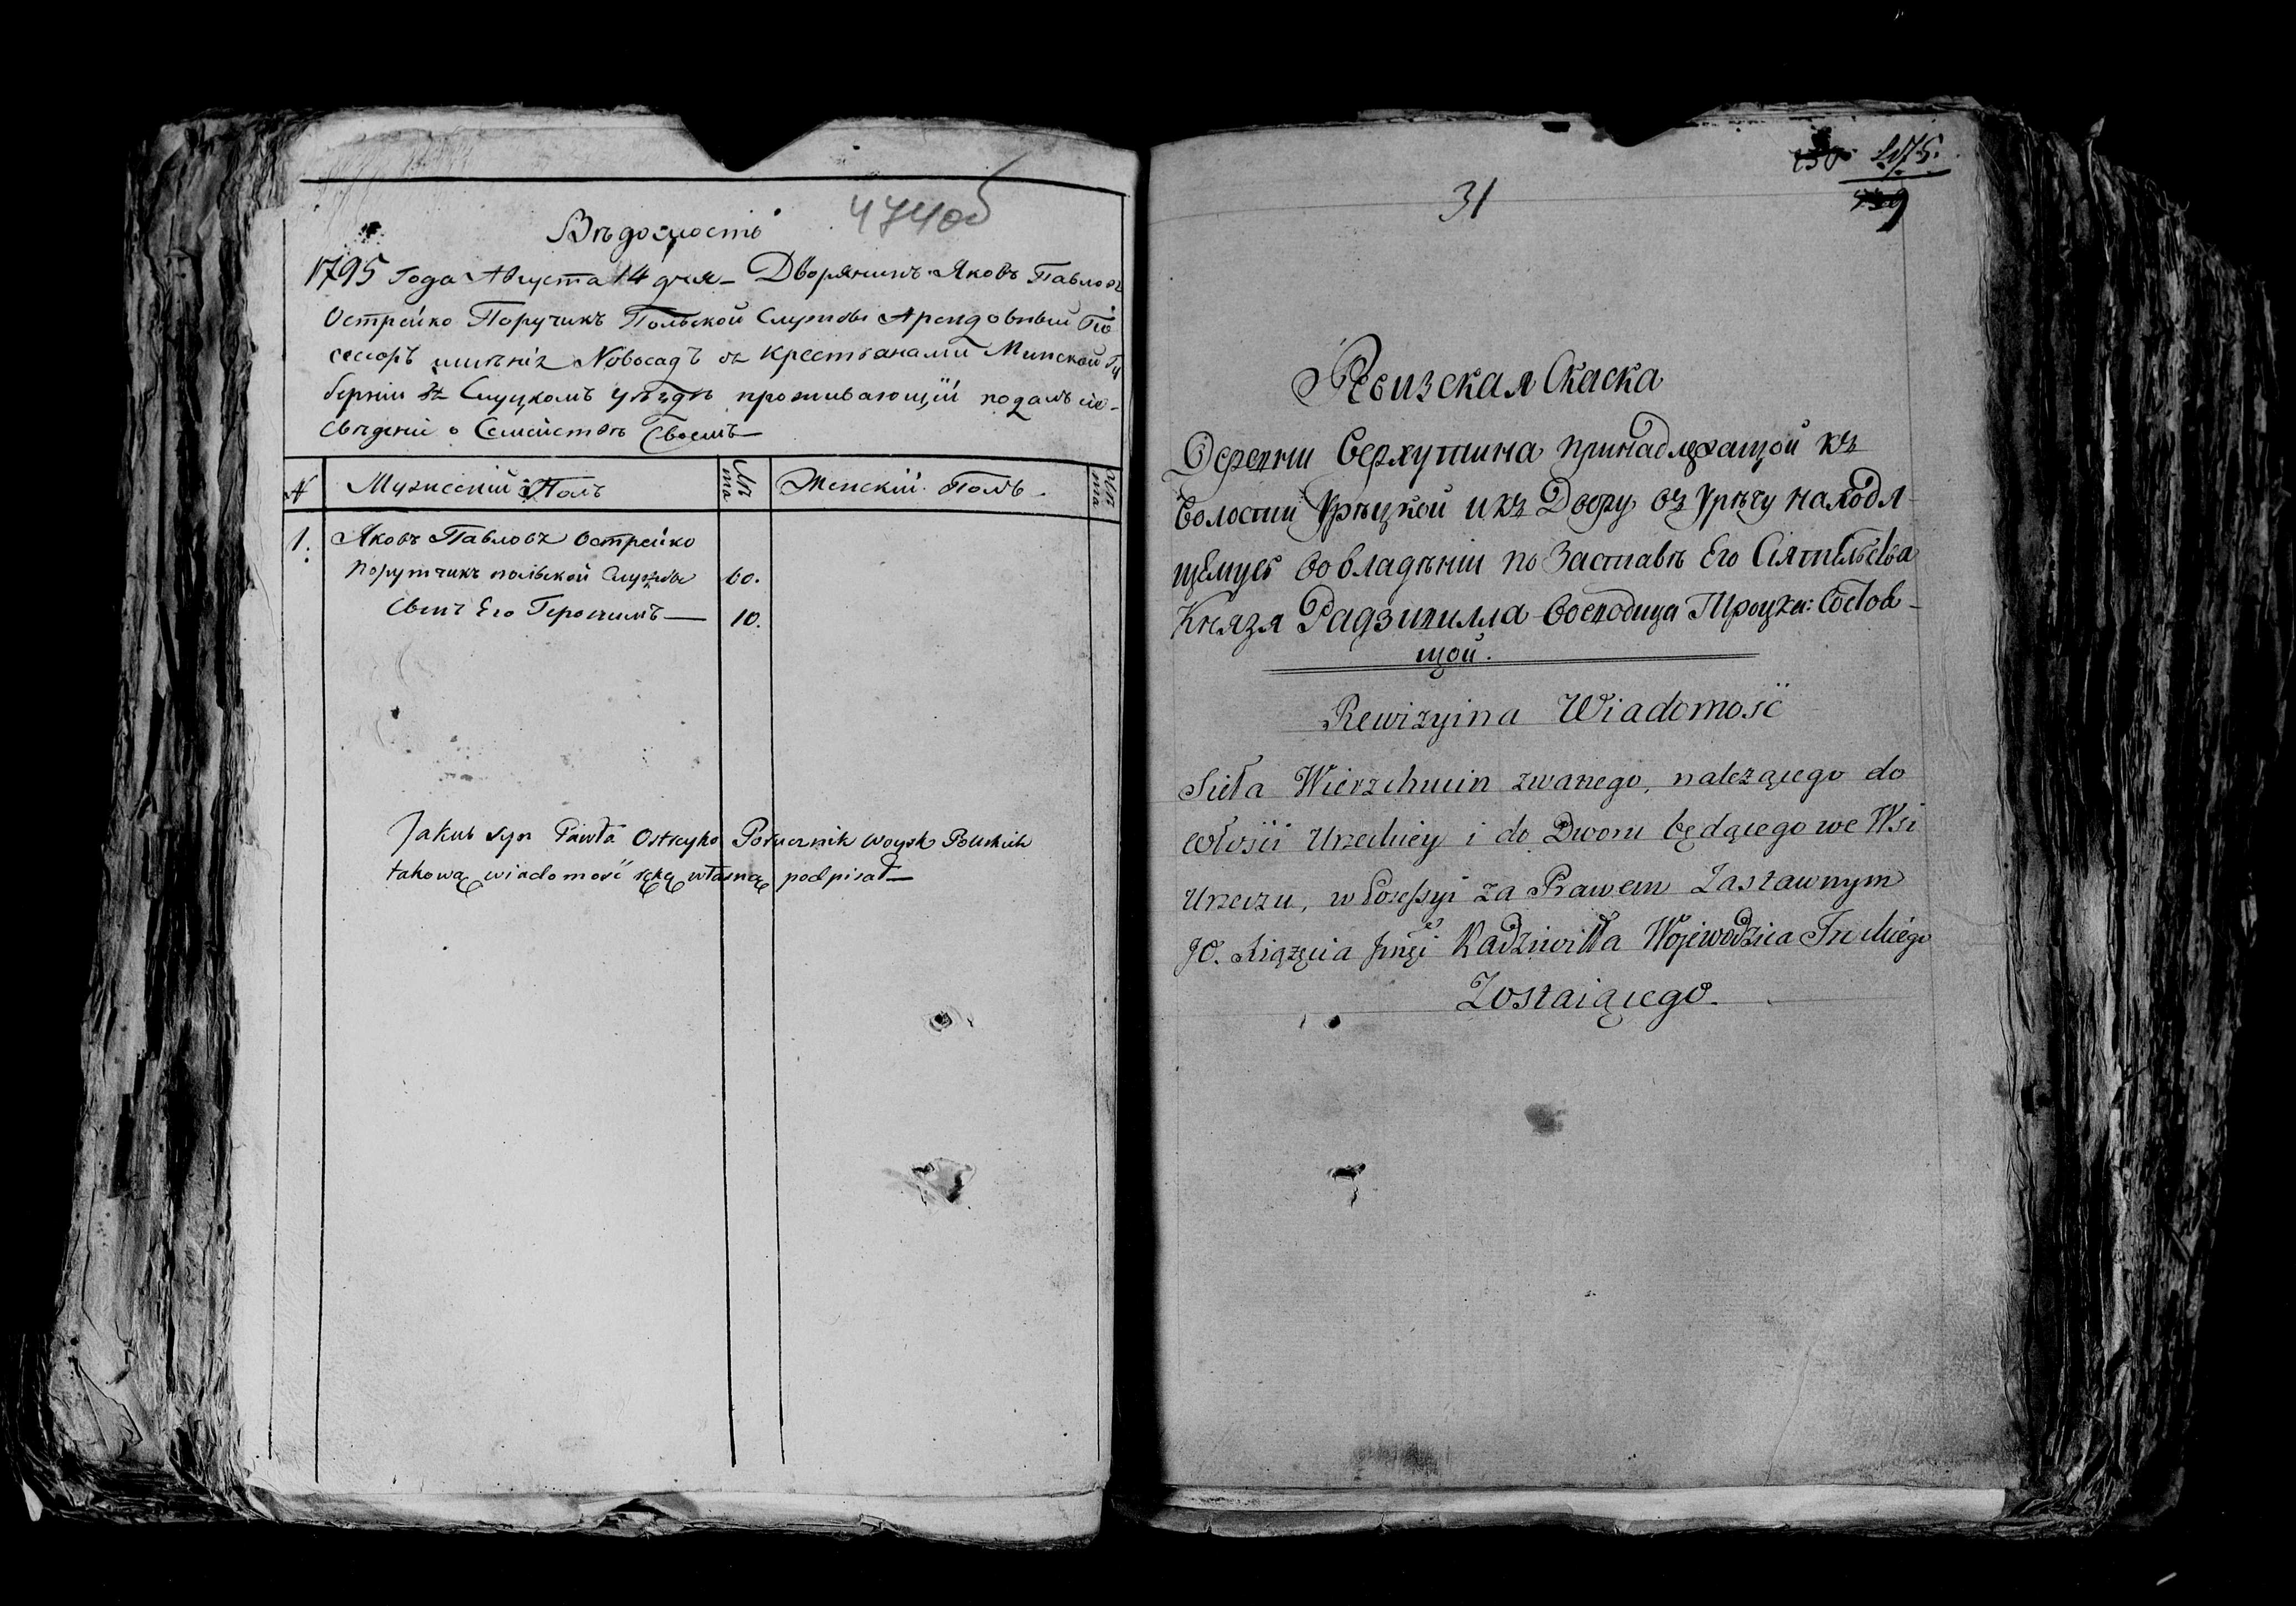 474об
Вѣдомость
1795 Года Августа 14 дня – Дворянинъ Яковъ Павловъ
Острейко Поручикъ Польской Службы Арендовный По
сесоръ имѣнія Новосадъ съ Крестьанами Минской Гу
берніи въ Слуцкомъ уѣздѣ проживающій подалъ сіе
Свѣденіе о Семействѣ Своемъ
№
Мужескій Полъ
Лѣ
та
Женскій Полъ
Лѣ
та
1.
Яковъ Павловъ Острейко
порутчикъ польской Службы
60.
Сынъ Его Геронимъ
10.
Jakub syn Pawła Ostreyko Porucznik woysk Polskich
takową wiadomość ręką własną podpisał
31
475.
Ревизская Скаска
Деревни Верхутина принадлежащой къ
Волости Урѣцкой и къ Двору въ Урѣчу находя-
щемусь во владѣніи по Заставѣ Его Сіятельства
Князя Радзивилла Воеводица Троцка: Состов-
щой.
Rewizyina Wiadomość
Sieła Wierzchucin zwanego, należącego do
włości Urzeckiey i do Dworu będącego we Wsi
Urzeczu, w Possessyi za Prawem Zastawnym
JO. Xiążęcia Radziwiłła Wojewodzica Trockiégo
Zostaiącego.